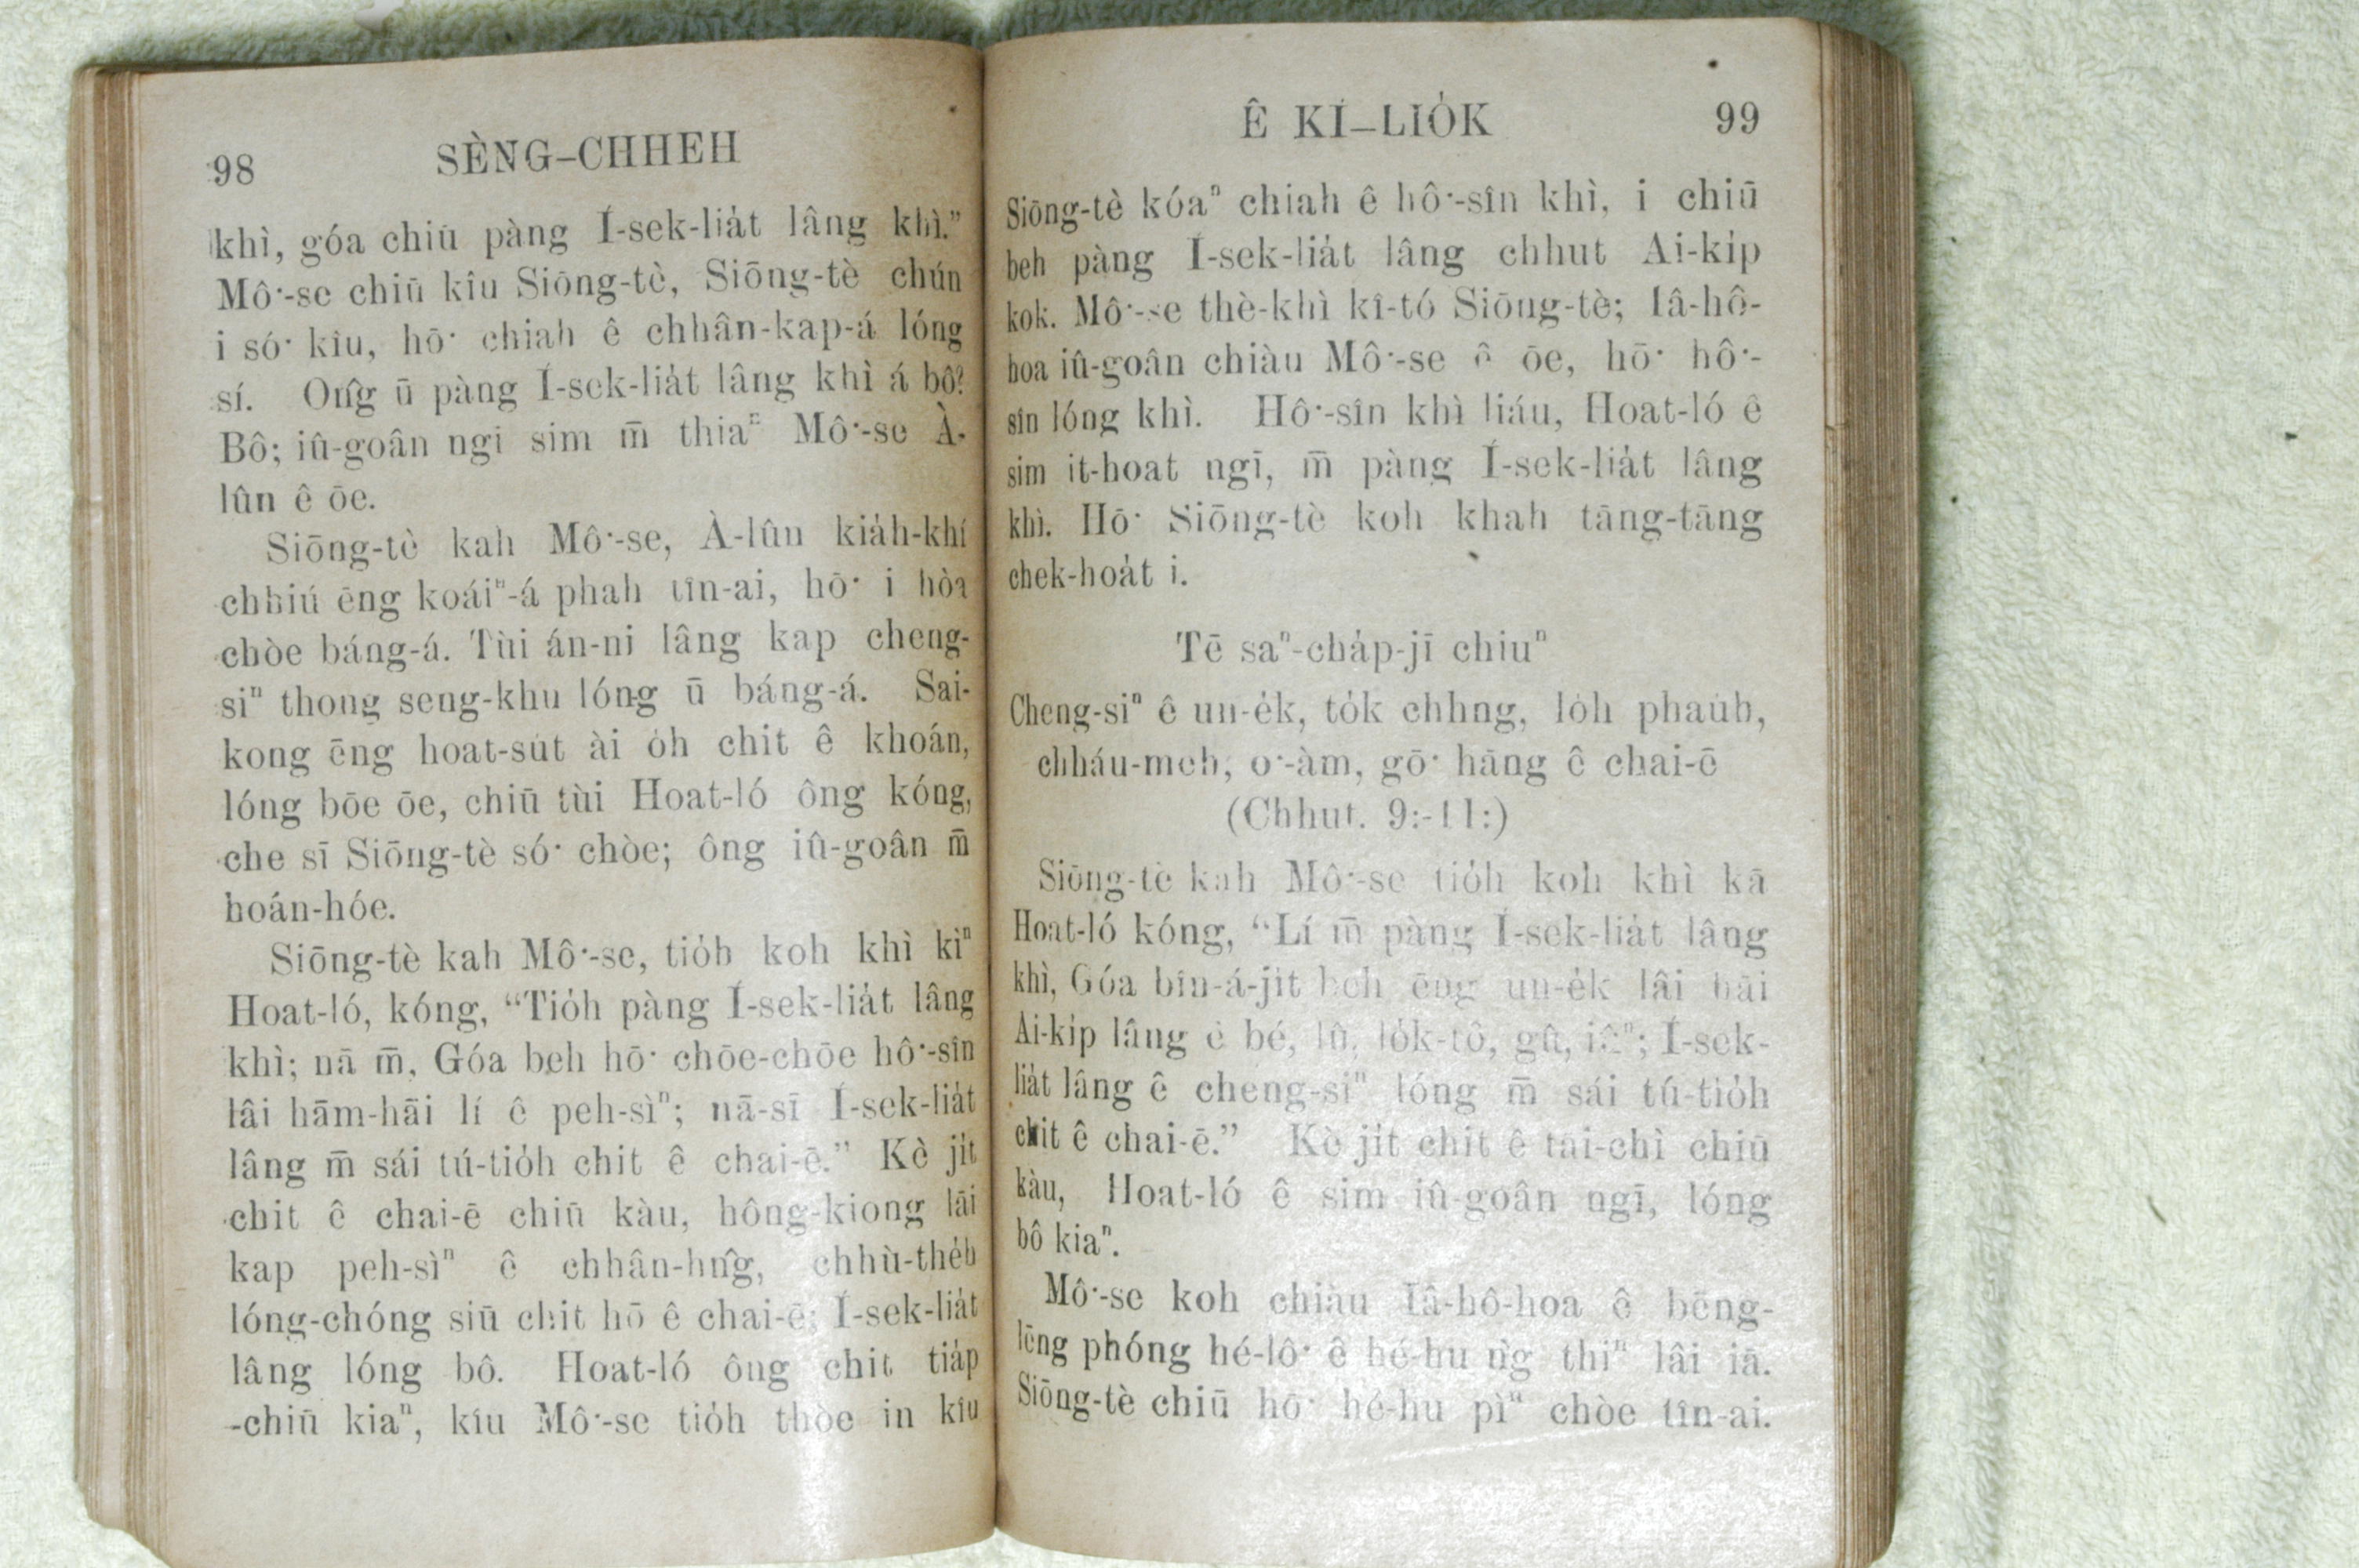 98 SÈNG-CHHEH
khì, góa chiū pàng Í-sek-lia̍t lâng khì.”
Mô͘-se chiū kîu Siōng-tè, Siōng-tè chún
i só͘ kîu, hō͘ chiah ê chhân-kap-á lóng
sí. Ôn̂g ū pàng Í-sek-lia̍t lâng khì á bô?
Bô; iû-goân ngī sim m̄ thiaⁿ Mô͘-se À-
lûn ê ōe.
Siōng-tè kah Mô͘-se, À-lûn kia̍h-khí
chhiú ēng koáiⁿ-á phah tîn-ai, hō͘ i hòa
chòe báng-á. Tùi án-ni lâng kap cheng-
siⁿ thong seng-khu lóng ū báng-á. Sai-
kong ēng hoat-su̍t ài o̍h chit ê khoán,
lóng bōe ōe, chiū tùi Hoat-ló ông kóng,
che sī Siōng-tè só͘ chòe; ông iû-goân m̄
hoán-hóe.
Siōng-tè kah Mô͘-se, tio̍h koh khì kìⁿ
Hoat-ló, kóng, “Tio̍h pàng Í-sek-lia̍t lâng
khì; nā m̄, Góa beh hō͘ chōe-chōe hô͘-sîn
lâi hām-hāi lí ê peh-sìⁿ; nā-sī Í-sek-lia̍t
lâng m̄ sái tú-tio̍h chit ê chai-ē.” Kè ji̍t
chit ê chai-ē chiū kàu, hông-kiong lāi
kap peh-sìⁿ ê chhân-hn̂g, chhù-the̍h
lóng-chóng siū chit hō ê chai-ē; Í-sek-lia̍t
lâng lóng bô. Hoat-ló ông chit tia̍p
-chiū kiaⁿ, kîu Mô͘-se tio̍h thòe in kîu
Ê KÌ-LIO̍K 99
Siōng-tè kóaⁿ chiah ê hô͘-sîn khì, i chiū
beh pàng Í-sek-lia̍t lâng chhut Ai-ki̍p
kok. Mô͘-se thè-khì kî-tó Siōng-tè; Iâ-hô-
hoa iû-goân chiàu Mô͘-se ê ōe, hō͘ hô͘-
sîn lóng khì. Hô͘-sîn khì liáu, Hoat-ló ê
sim it-hoat ngī, m̄ pàng Í-sek-lia̍t lâng
khì. Hō͘ Siōng-tè koh khah tāng-tāng
chek-hoa̍t i.
Tē saⁿ-cha̍p-jī chiuⁿ
Cheng-siⁿ ê un-e̍k, to̍k chhng, lo̍h pha̍uh,
chháu-meh, o͘-àm, gō͘ hāng ê chai-ē
(Chhut. 9:-11:)
Siōng-tè kah Mô͘-se tio̍h koh khì kā
Hoat-ló kóng, “Lí m̄ pàng Í-sek-lia̍t lâng
khì, Góa bîn-á-ji̍t beh ēng un-e̍k lâi hāi
Ai-ki̍p lâng ê bé, lû, lo̍k-tô, gû, iûⁿ; Í-sek-
lia̍t lâng ê cheng-siⁿ lóng m̄ sái tú-tio̍h
chit ê chai-ē.” Kè ji̍t chit ê tāi-chì chiū
kàu, Hoat-ló ê sim iû-goân ngī, lóng
bô kiaⁿ.
Mô͘-se koh chiàu Iâ-hô-hoa ê bēng-
lēng phóng hé-lô͘ ê hé-hu n̍g thiⁿ lâi iā.
Siōng-tè chiū hō͘ hé-hu pìⁿ chòe tîn-ai.